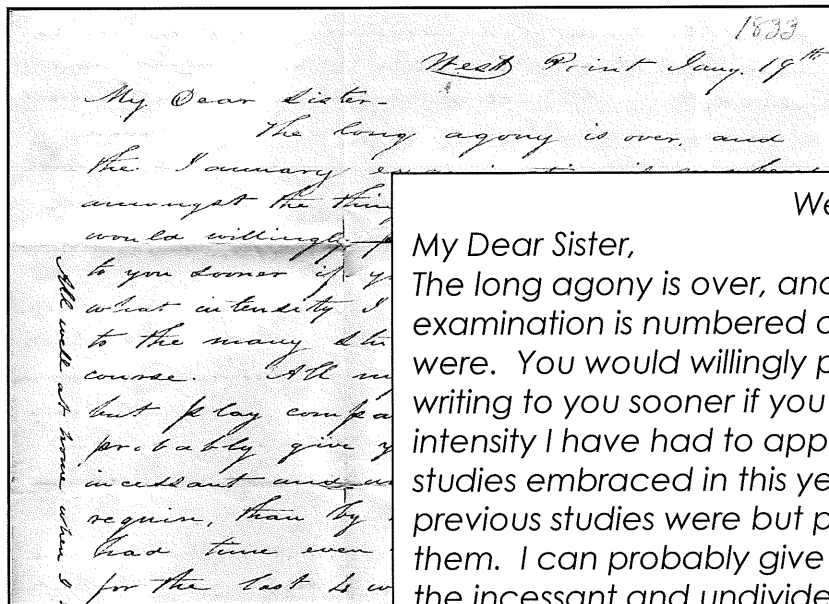 1833
West Point Jany. 19th
My Dear Sister-
The long agony is over, and
the January
amongst the thin
would willingly p
to you sooner if y
what intensity I
to the many stu
course. All m
but play compa
probably give y
incessant and un
require, than by
had time even
for the last
All well at home when I
We
My Dear Sister,
The long agony is over, and
examination is numbered a
were. You would willingly p
writing to you sooner if you
intensity I have had to app
studies embraced in this ye
previous studies were but p
them. I can probably give
the incessant and undivide